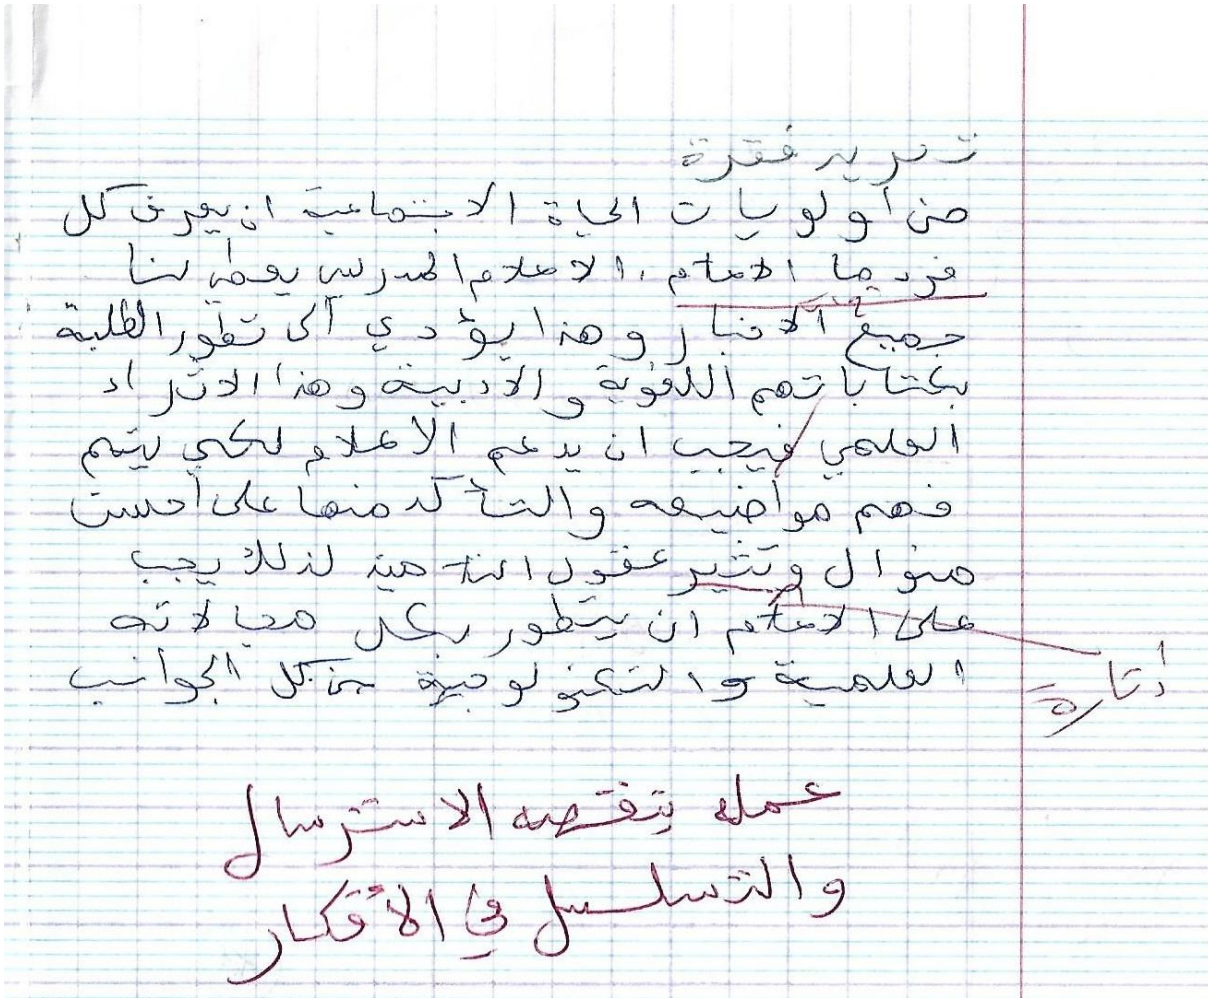 تحرير فقرة
من أولويات الحياة الاجتماعية ان يعرف كل
فرد ما الاعلام. الاعلام المدرسي يعطي لنا
جميع الاخبار وهذا يؤدي الى تطور الطلبة
بكتاباتهم اللغوية والادبية وهذا الاثراء
العلمي فيجب ان يدعم الاعلام لكي يتم
فهم مواضيعه والتأكد منها على أحسن
منوال وتثير عقول لذلك يجب
على الاعلام ان يتطور بكل مجالاته
العلمية والتكنولوجية من كل الجوانب
إثارة
عمله ينقصه الاسترسال
والتسلسل في الأفكار